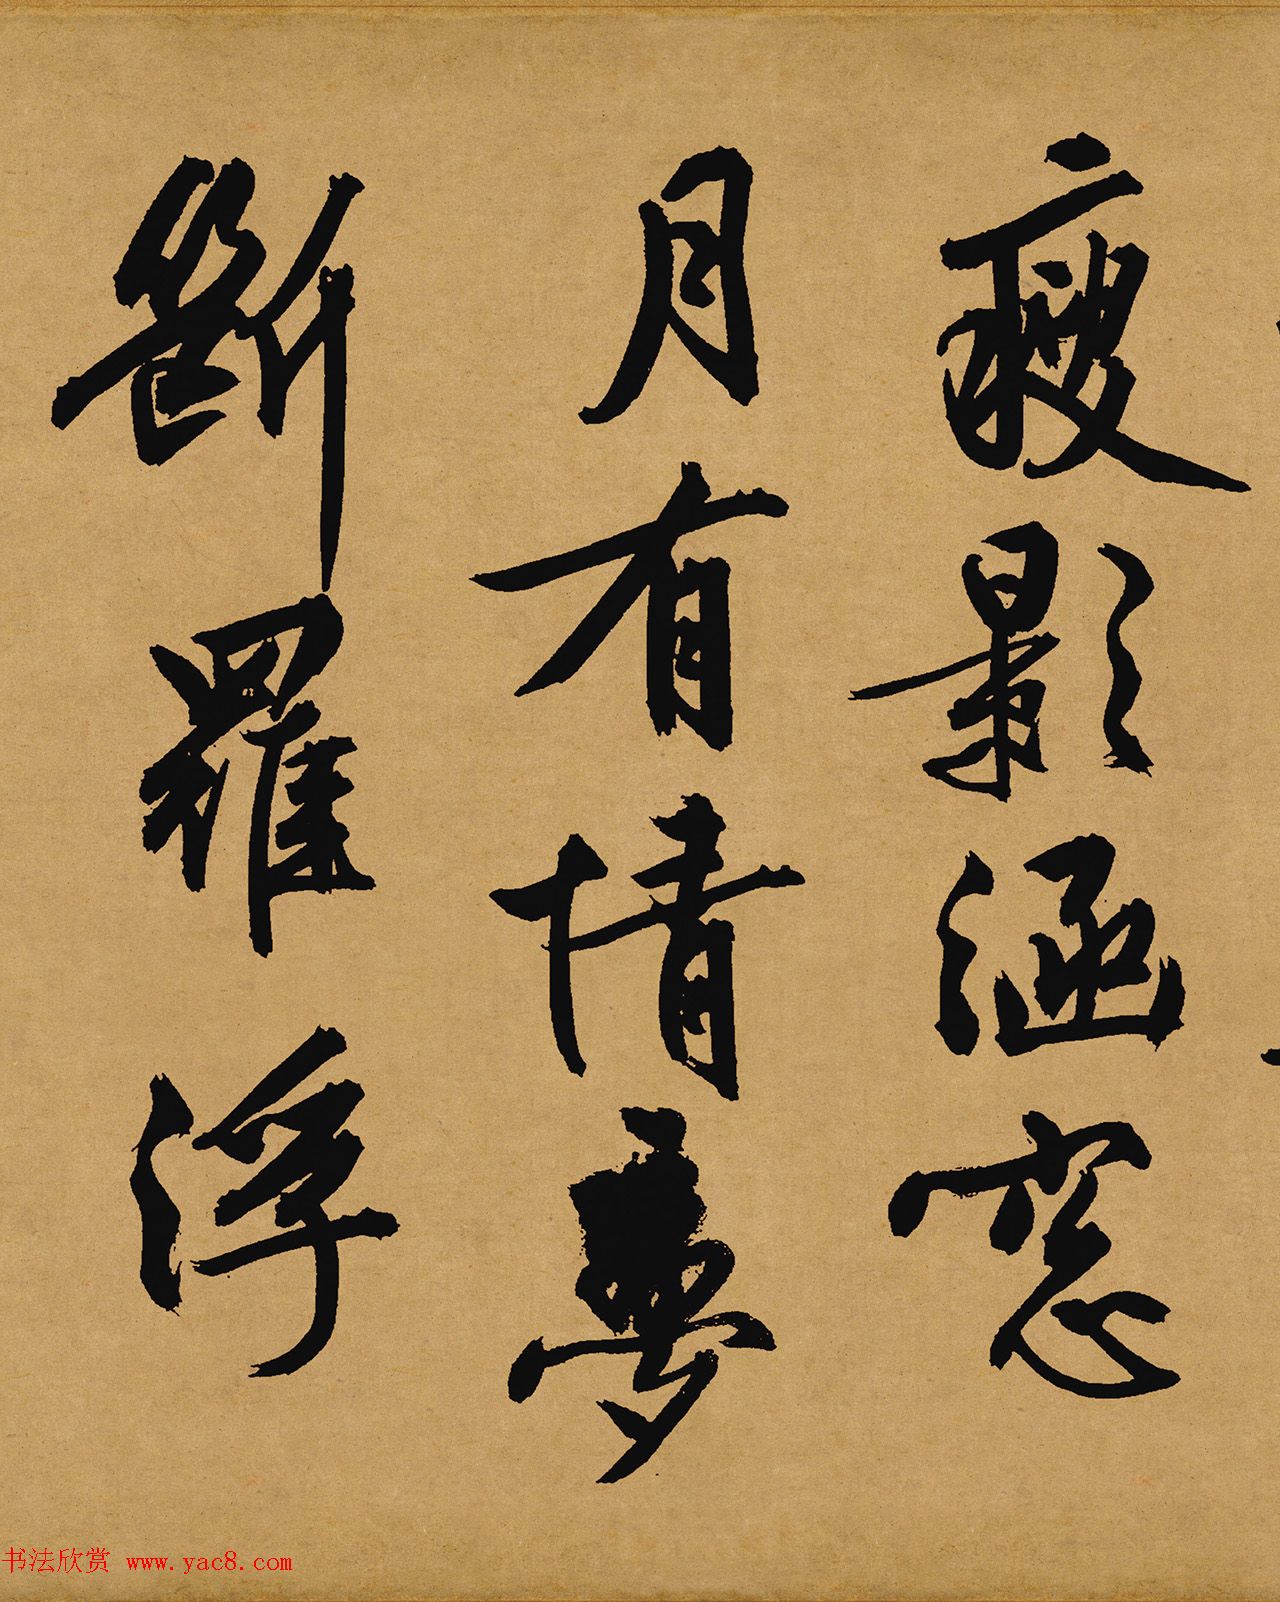 瘦影涵窓
月有情夢
斷羅浮
书法欣赏 www.yac8.com